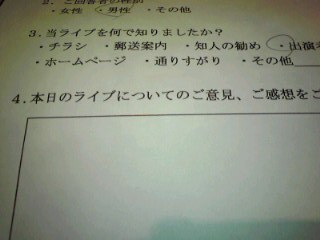 2. ご回答者の性別
・女性 ・男性 ・その他
3. 当ライブを何で知りましたか?
・チラシ ・郵送案内 ・知人の勧め ・出演
・ホームページ ・通りすがり ・その他
4. 本日のライブについてのご意見、ご感想をご